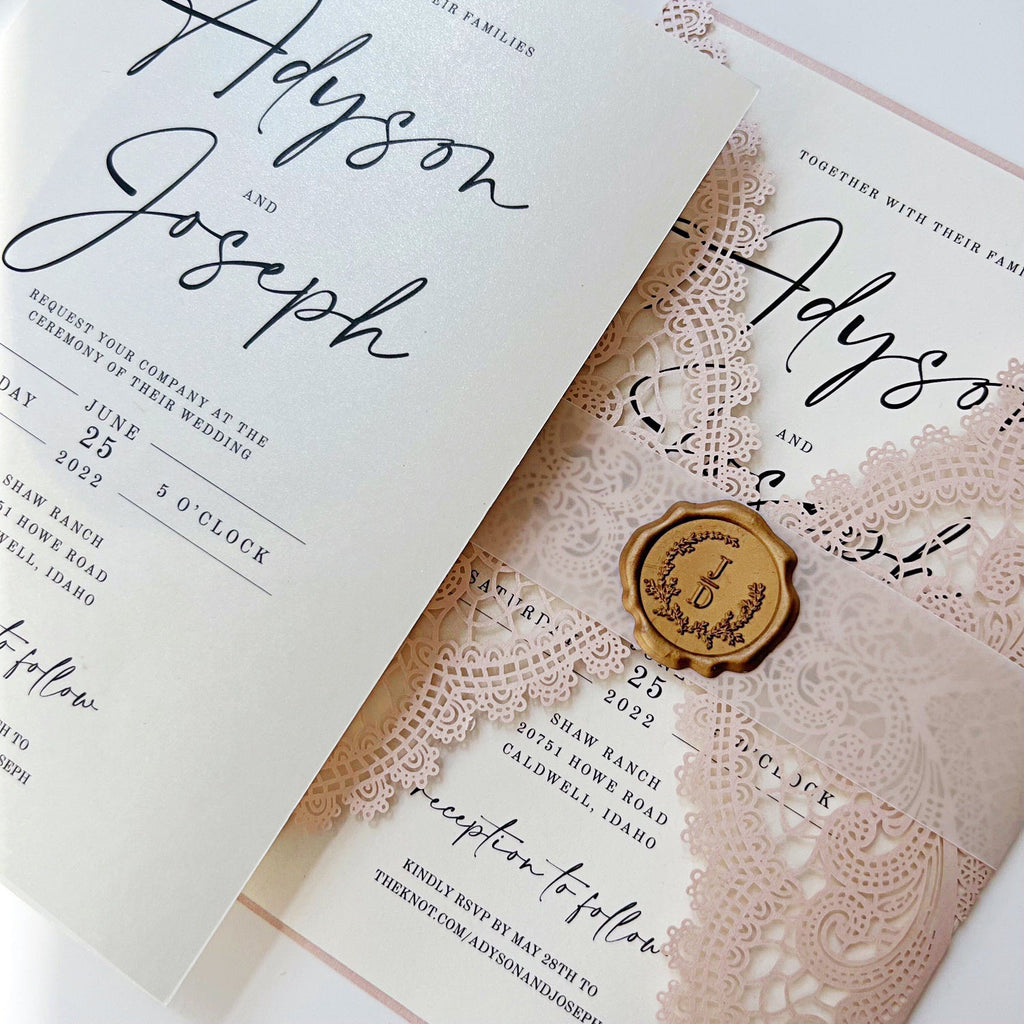 THEIR FAMILIES
Adyson
AND
Joseph
REQUEST YOUR COMPANY AT THE
CEREMONY OF THEIR WEDDING
DAY
JUNE
25
2022
5 O'CLOCK
SHAW RANCH
HOWE ROAD
CALDWELL, IDAHO
to follow
TO
TOGETHER WITH THEIR FAMI
Adyson
AND
J
D
SATURD
25
2022
O'CLOCK
SHAW RANCH
20751 HOWE ROAD
CALDWELL, IDAHO
reception to follow
KINDLY RSVP BY MAY 28TH TO
THEKNOT.COM/ADYSONANDJOSEPH